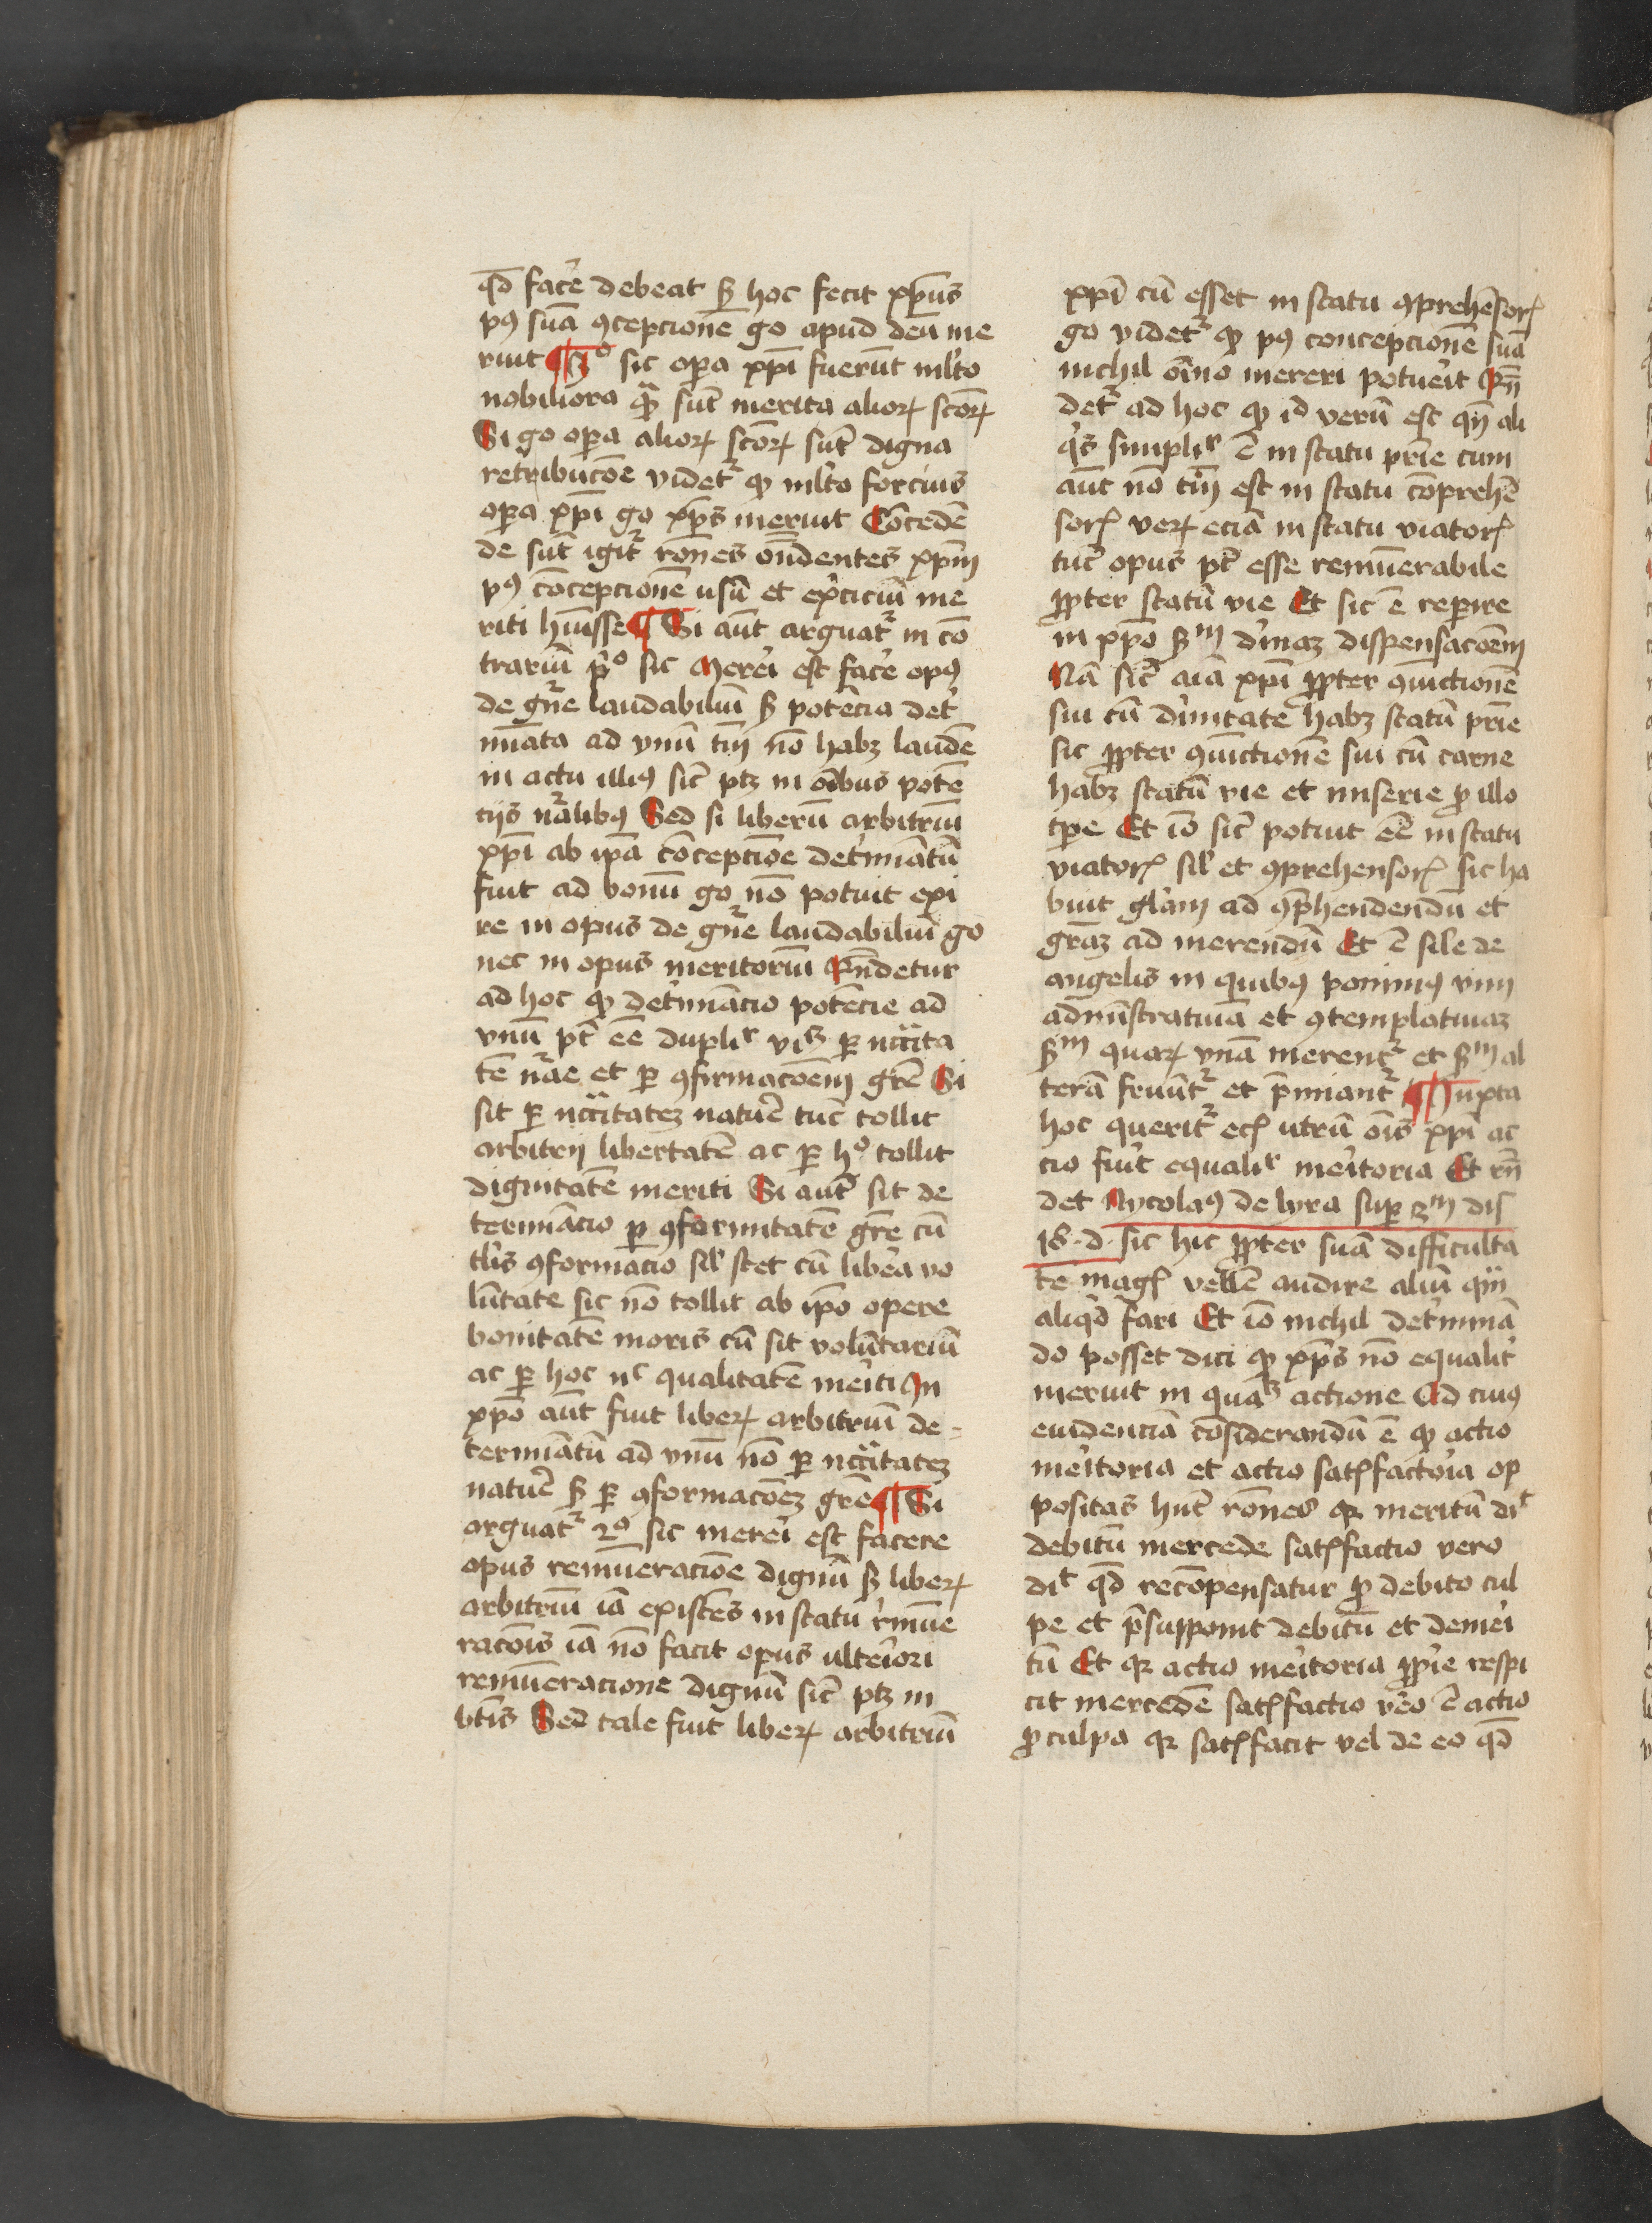 qd̄ facе̄ debeat sꝫ hoc fecit xp̄us
pꝰ suā ꝯcepcionē go apud deū me
ruit ¶ 3º sic opa xp̄i fuerūt ml̄to
nobiliora qᷓ sūt merita alioꝝ sc̄oꝝ
Si go opa alioꝝ sc̄oꝝ sūt digna
retribucōe videtʳ ꝙ ml̄to forcius
opa xp̄i go xp̄s meruit Cōcedē
de sūt igitʳ rōnes on̄dentes xp̄m
pꝰ cōcepcionē usū et ex̄ciciū me
riti hūisse ¶ Si aūt arguatʳ in cō
trariū pº sic Merei est face opꝰ
de gn̄e laudabiliū sꝫ potēcia det̄
mīata ad vnū tm̄ nō habꝫ laudē
in actu illiꝰ sic̄ ptꝫ in oībus potē
ciis nᷓalibꝰ Sed si liberū arbitriū
xp̄i ab ip̄a cōcepcione det̄miātū
fuit ad bonū go nō potuit exi
re in opus de gn̄e laudabiliū go
nec in opus meritoriū Rn̄detur
ad hoc ꝙ det̄mīacio potēcie ad
vnū pt̄ ēe dupliʳ viꝫ ꝑ nccīta
tē nᷓae et ꝑ ꝯfirmacōem grē Si
sit ꝑ nccītatēꝫ natur̄e tūc tollit
arbitrij libertatē ac ꝑ hº tollit
dignitatē meriti Si aūt sit de
termīacio ꝑ ꝯformitatē grē cū
tl̄is ꝯformacio sil̄ stet cū libera vo
lūtate sic nō tollit ab ip̄o opere
bonitatē moris cū sit volūtariū
ac ꝑ hoc nᶜ qualitatē meriti In
xp̄o aūt fuit liberꝝ arbitriū de⸗
termiātū ad vnū nō ꝑ nccītatēꝫ
natur̄e sꝫ ꝑ ꝯformacōeꝫ grē ¶ Si
arguatʳ 2º sic merei est facere
opus remūeracōe dignū sꝫ liberꝝ
arbitriū iā existēs in statu rmūe
racōis iā nō facit opus ulteriori
remūeracione dignū sic̄ ptꝫ in
btīs Sed tale fuit liberꝝ arbitriū
xp̄i cū esset in statu ꝯprehēsorꝭ
go videtʳ ꝙ pꝰ concepcionē suā
nichil oīno mereri potuerit Rn̄
detʳ ad hoc ꝙ id verū est qn̄ ali
qs simpliʳ ē in statu prīe cum
aūt nō tm̄ est in statu cōprehē
sorꝭ verꝝ eciā in statu viatorꝭ
tūc opus pt̄ esse remūerabile
ꝓpter statū vie Et sic ē reperire
in xp̄o sꝫᵐ diuinaꝫ dispensacōem
Nā sic̄ aīa xp̄i ꝓpter ꝯiūctionē
sui cū diuinitate habꝫ statū prīe
sic ꝓpter ꝯiūctionē sui cū carne
habꝫ statū vie et miserie ꝓ illo
tpe Et iō sic̄ potuit ēe in statu
viatorꝭ sil̄ et ꝯprehensorꝭ sic ha
buit glām ad ꝯp̄hendendū et
grāꝫ ad merendū Et ē sile de
angelis in quibꝰ ponimꝰ vim
admīstratiuā et ꝯtemplatiuaꝫ
sꝫᵐ quaꝝ vnā merentʳ et sꝫᵐ al
terā fruūtʳ et p̄miantʳ ¶ Iuxta
hoc queritʳ ecꝭ utrū oīs xp̄i ac
cio fuit equaliʳ meritoria Et rn̄
det Nycolaꝰ de lyra sup 3ᵐ dis
18 · d · sic hic ꝓpter suā difficulta
tē magꝭ vellē audire aliū qᷓm
aliqd fari Et iō nichil det̄minā
do posset dici ꝙ xp̄s nō equalit̄
meruit in quaꝫ actione Ad cuiꝰ
euidenciā cōsiderandū ē ꝙ actio
meritoria et actio satꝭfactoria op
positas hn̄t rōnes qꝛ meritū dīᵗ
debitū mercede satꝭfactio vero
dīᵗ qd̄ recōpensatur ꝓ debito cul
pe et p̄supponit debitū et demeri
tū Et qꝛ actio meritoria ꝓprīe respi
cit mercedē satꝭfactio vēo ē actio
ꝓ culpa qꝛ satꝭfacit vel de eo qd̄